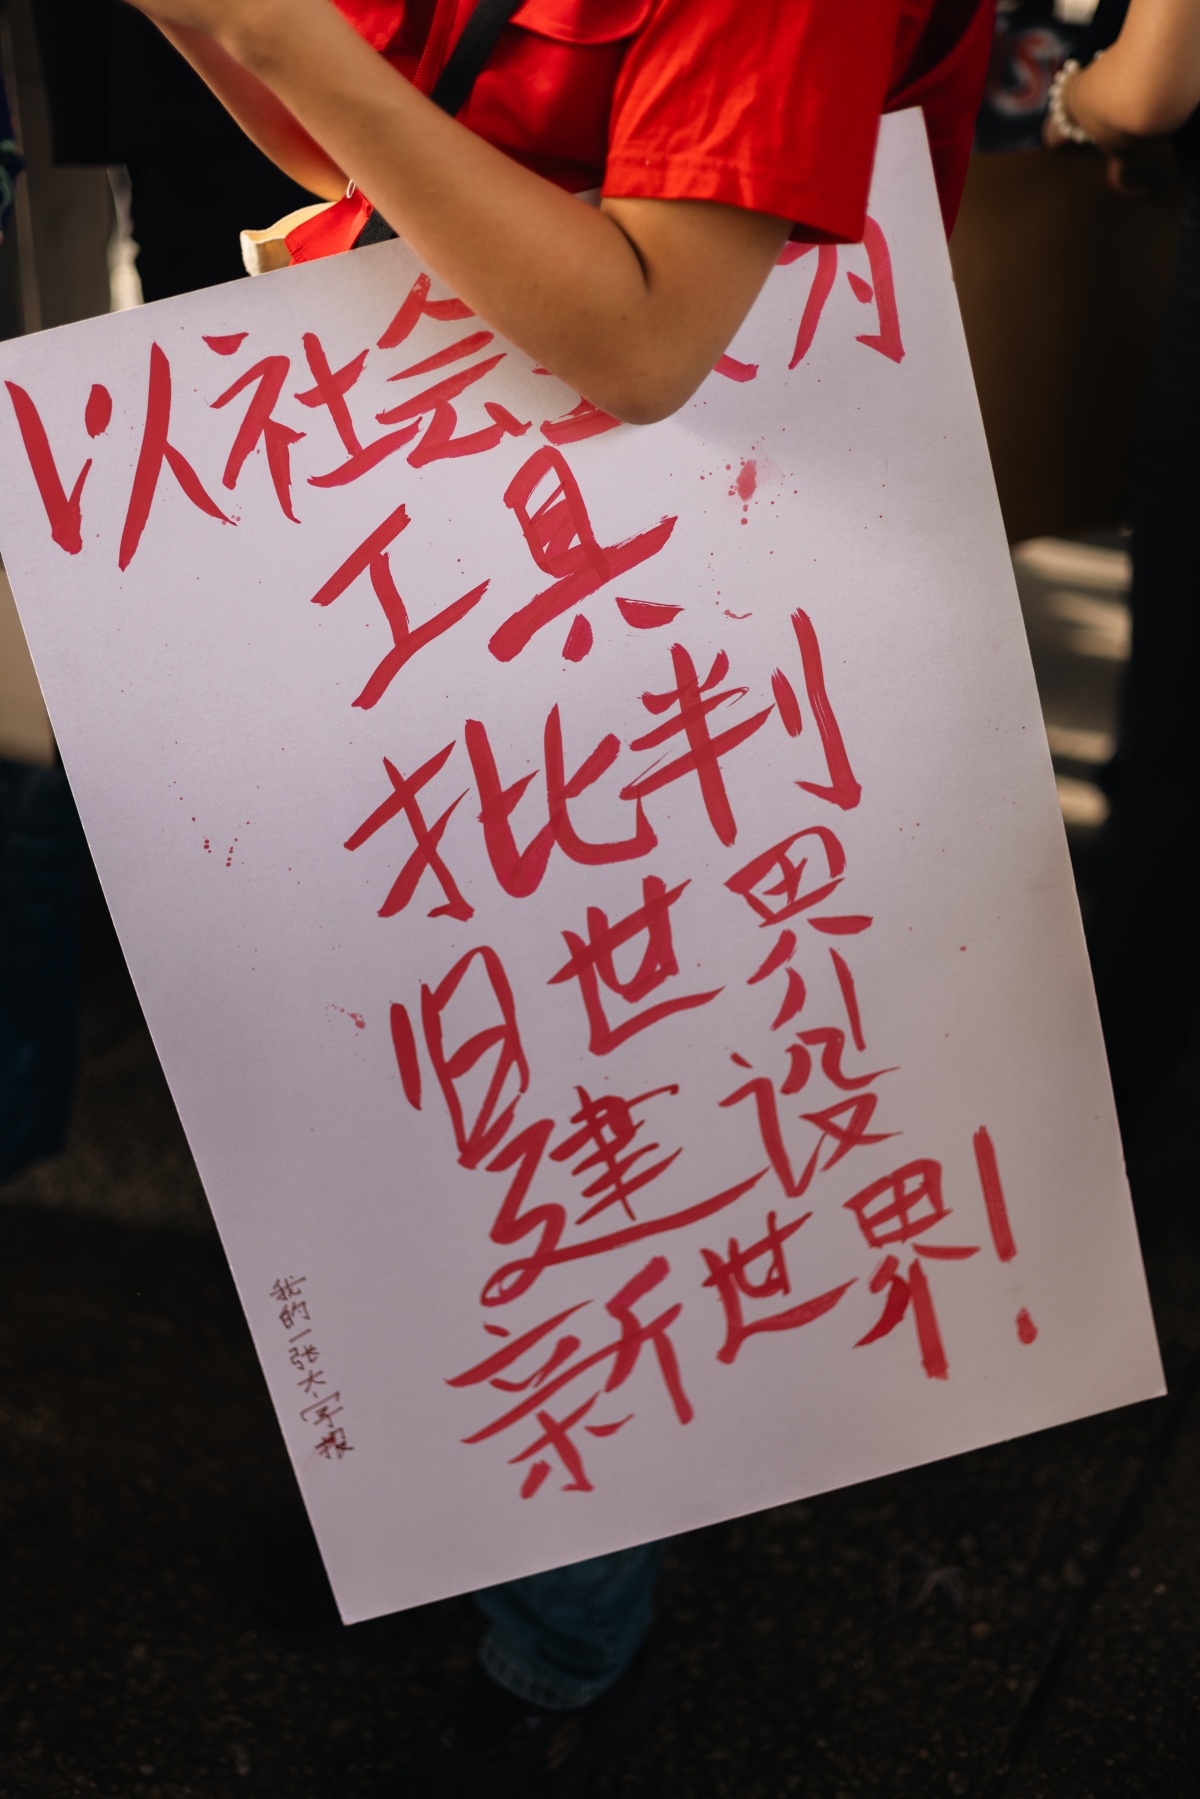 以社会 为
工具
批判
旧世界
建设
新世界！
我的一张大字报